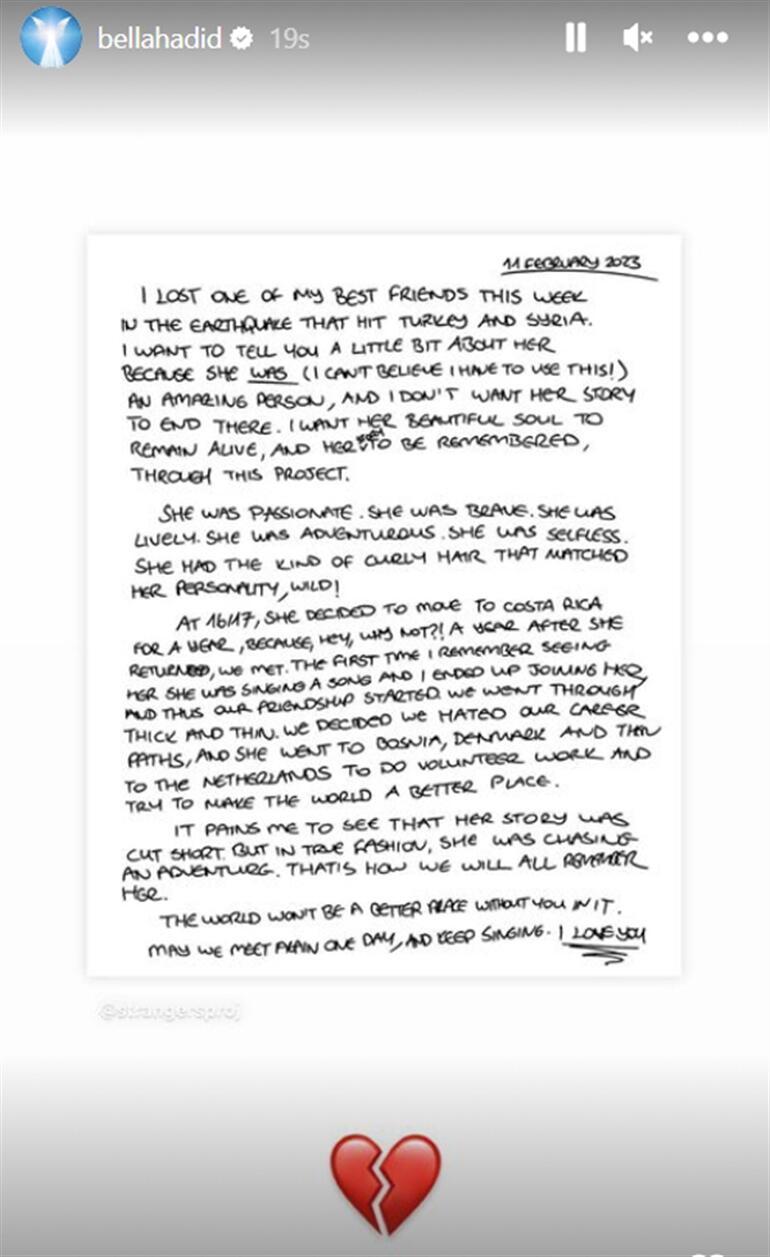 bellahadid 19s
11 FEBRUARY 2023
I LOST ONE OF MY BEST FRIENDS THIS WEEK
IN THE EARTHQUAKE THAT HIT TURKEY AND SYRIA.
I WANT TO TELL YOU A LITTLE BIT ABOUT HER
BECAUSE SHE WAS (I CAN'T BELIEVE I HAVE TO USE THIS!)
AN AMAZING PERSON, AND I DON'T WANT HER STORY
TO END THERE. I WANT HER BEAUTIFUL SOUL TO
REMAIN ALIVE, AND HER TO BE REMEMBERED,
THROUGH THIS PROJECT.
SHE WAS PASSIONATE. SHE WAS BRAVE. SHE WAS
LIVELY. SHE WAS ADVENTUROUS. SHE WAS SELFLESS.
SHE HAD THE KIND OF CURLY HAIR THAT MATCHED
HER PERSONALITY, WILD!
AT 16/17, SHE DECIDED TO MOVE TO COSTA RICA
FOR A YEAR, BECAUSE, HEY, WHY NOT?! A YEAR AFTER SHE
RETURNED, WE MET. THE FIRST TIME I REMEMBER SEEING
HER SHE WAS SINGING A SONG AND I ENDED UP JOINING HER,
AND THUS OUR FRIENDSHIP STARTED. WE WENT THROUGH
THICK AND THIN. WE DECIDED WE HATED OUR CAREER
PATHS, AND SHE WENT TO BOSNIA, DENMARK AND THEN
TO THE NETHERLANDS TO DO VOLUNTEER WORK AND
TRY TO MAKE THE WORLD A BETTER PLACE.
IT PAINS ME TO SEE THAT HER STORY WAS
CUT SHORT. BUT IN TRUE FASHION, SHE WAS CHASING
AN ADVENTURE. THAT'S HOW WE WILL ALL REMEMBER
HER.
THE WORLD WON'T BE A BETTER PLACE WITHOUT YOU IN IT.
MAY WE MEET AGAIN ONE DAY, AND KEEP SINGING. I LOVE YOU
@strangersproj